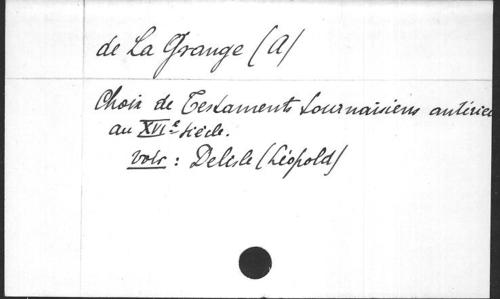 de La Grange (A)
Choix de Testaments tournaisiens antérieu
au XVIe siècle.
voir : Delisle (Léopold)